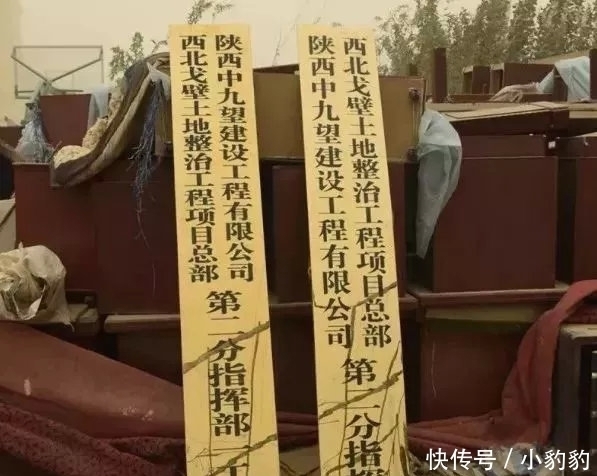 陕西中九望建设工程有限公司
西北戈壁土地整治工程项目总部
第二分指挥部
陕西中九望建设工程有限公司
西北戈壁土地整治工程项目总部
第二分指
快传号 / 小豹豹